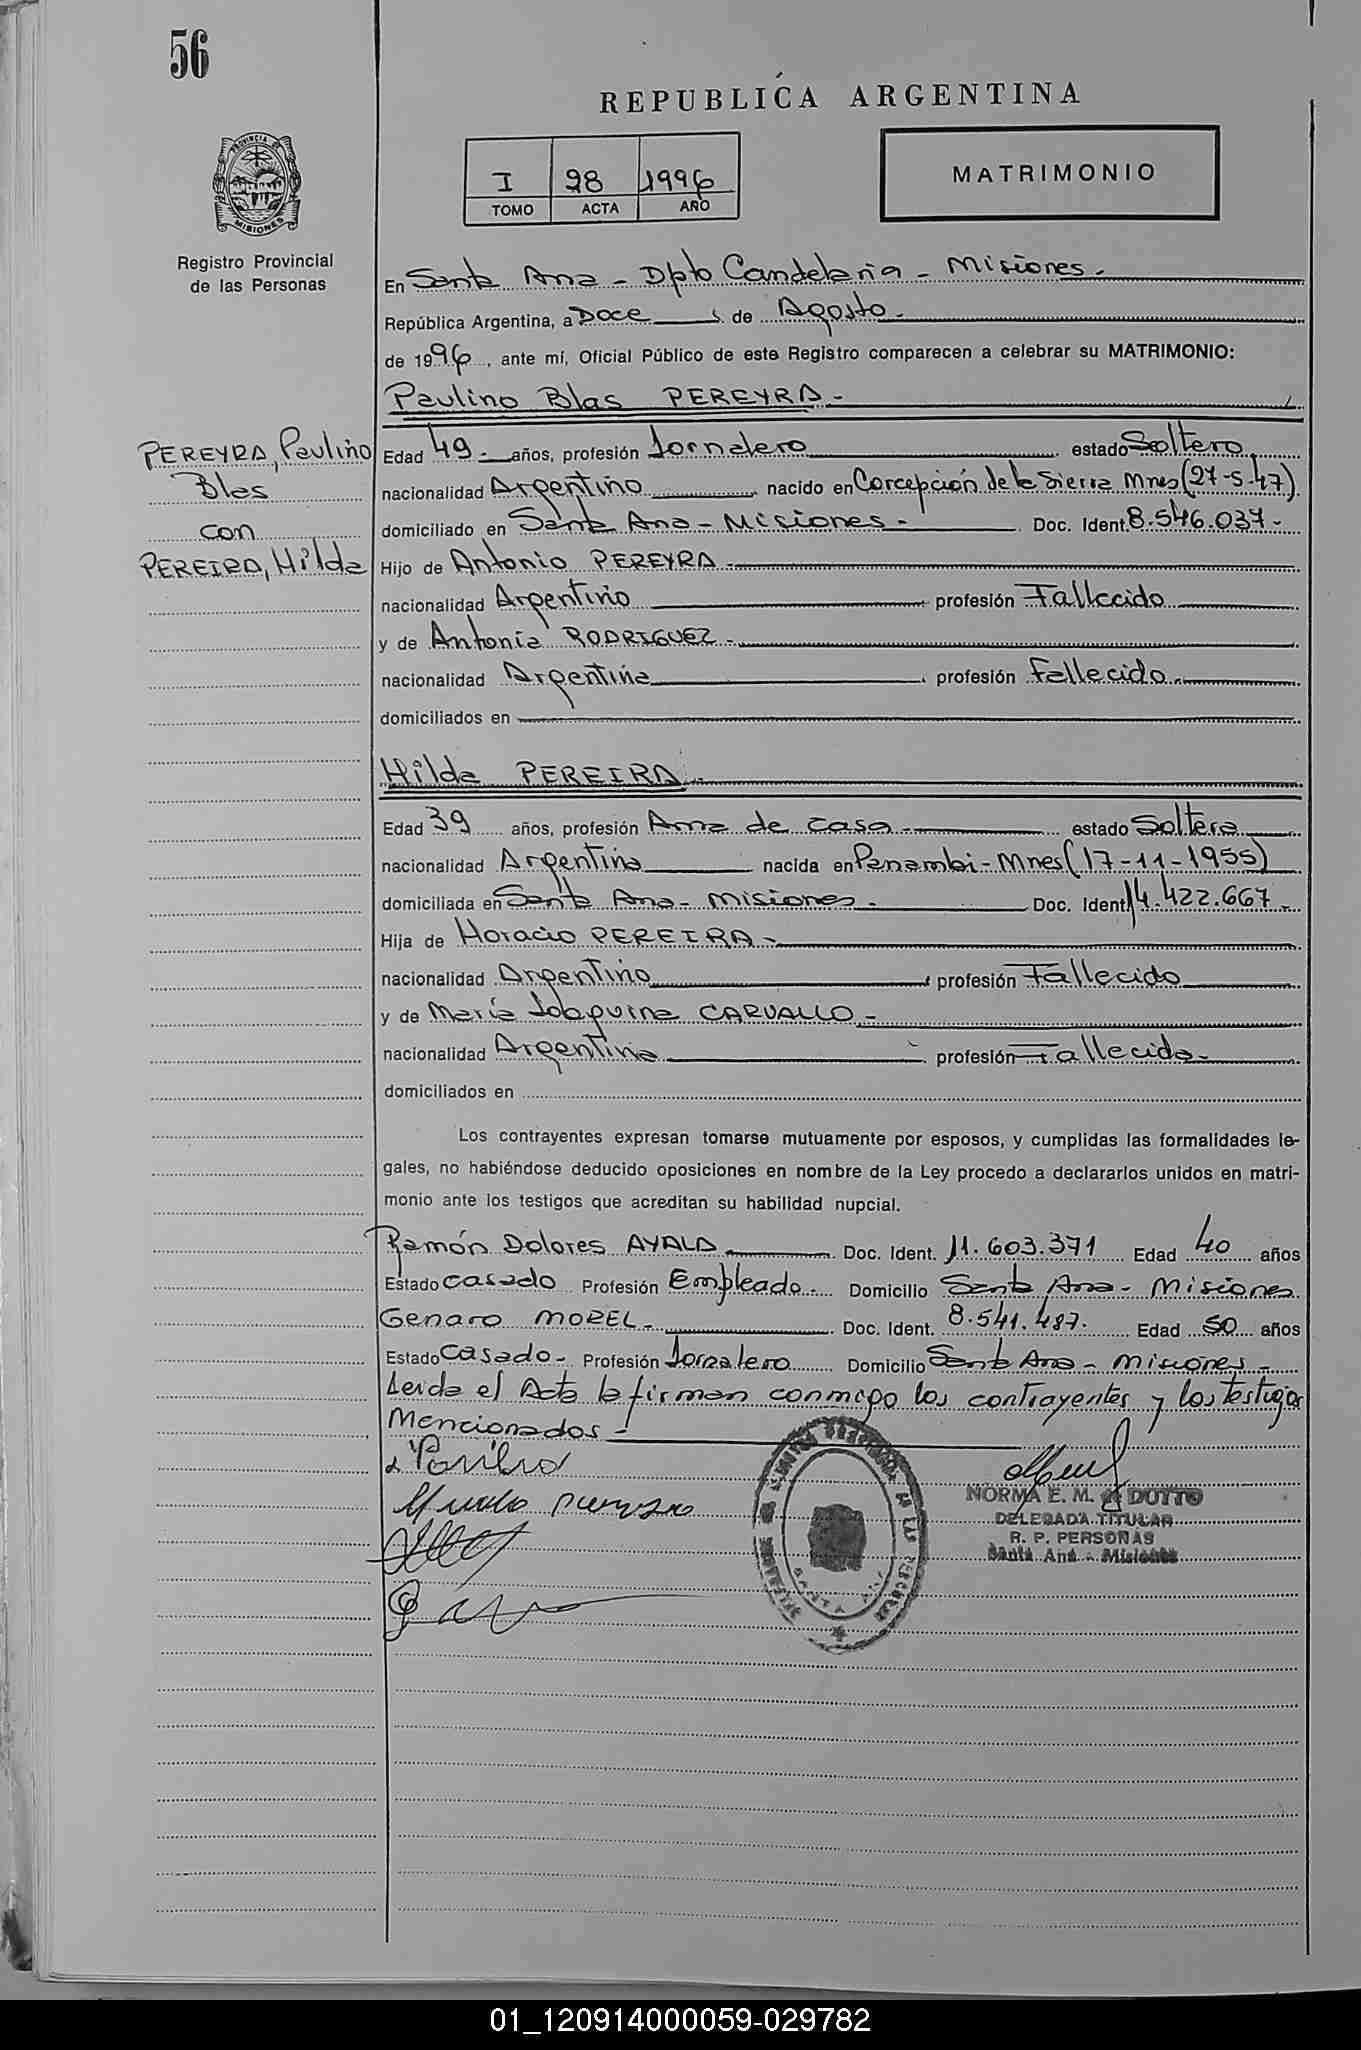 56
REPUBLICA ARGENTINA
I 28 1996
TOMO ACTA AÑO
MATRIMONIO
PROVINCIA DE MISIONES
Registro Provincial
de las Personas
En Santa Ana - Dpto Candelaria - Misiones.-
República Argentina, a Doce de Agosto.-
de 1996, ante mí, Oficial Público de este Registro comparecen a celebrar su MATRIMONIO:
Paulino Blas PEREYRA.-
PEREYRA, Paulino
Blas
con
PEREIRA, Hilda
Edad 49.- años, profesión Jornalero estado Soltero
nacionalidad Argentino nacido en Concepción de la Sierra Mnes (27-5-47)
domiciliado en Santa Ana - Misiones.- Doc. Ident. 8.546.037.-
Hijo de Antonio PEREYRA.-
nacionalidad Argentino profesión Fallecido
y de Antonia RODRIGUEZ.-
nacionalidad Argentina profesión Fallecido.-
domiciliados en
Hilda PEREIRA.-
Edad 39 años, profesión Ama de casa.- estado Soltera
nacionalidad Argentina nacida en Panambi - Mnes (17-11-1955)
domiciliada en Santa Ana - Misiones.- Doc. Ident. 14.422.667.-
Hija de Horacio PEREIRA.-
nacionalidad Argentino profesión Fallecido
y de María Joaquina CARVALLO.-
nacionalidad Argentina profesión Fallecida.-
domiciliados en
Los contrayentes expresan tomarse mutuamente por esposos, y cumplidas las formalidades le-
gales, no habiéndose deducido oposiciones en nombre de la Ley procedo a declararlos unidos en matri-
monio ante los testigos que acreditan su habilidad nupcial.
Ramón Dolores AYALA Doc. Ident. 11.603.371 Edad 40 años
Estado casado Profesión Empleado.- Domicilio Santa Ana - Misiones
Genaro MOREL.- Doc. Ident. 8.541.487. Edad 50 años
Estado Casado.- Profesión Jornalero Domicilio Santa Ana - Misiones.-
Leida el Acta la firman conmigo los contrayentes y los testigos
Mencionados.-
NORMA E. M. de DOTTO
DELEGADA TITULAR
R. P. PERSONAS
Santa Ana - Misiones
SANTA ANA
01_120914000059-029782